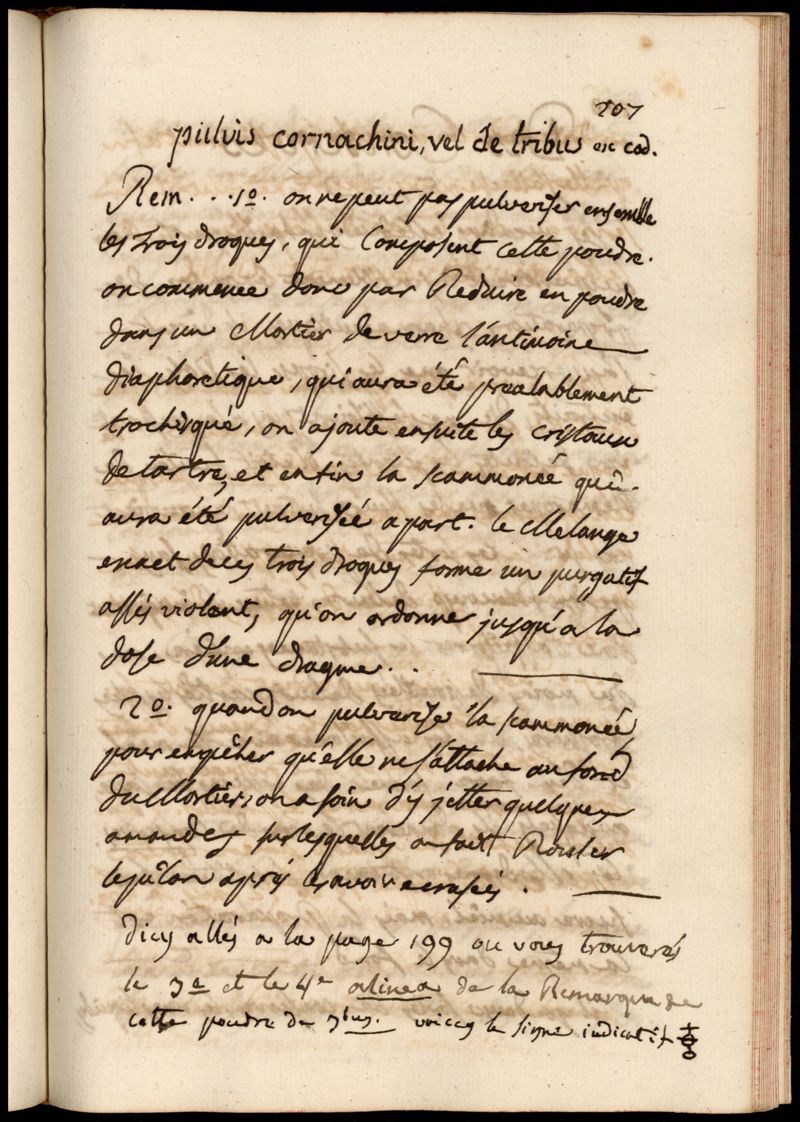 207
pulvis cornachini, vel de tribus ex cod.
Rem. . . 1º. on ne peut pas pulveriser ensemble
les trois drogues, qui Composent cette poudre.
on commence donc par Reduire en poudre
dans un Mortier de verre l'antimoine
diaphoretique, qui aura été prealablement
trochisqué, on ajoute ensuite les cristaux
de tartre, et enfin la scammonéé qui
aura été pulveriséé apart. le Melange
exact de ces trois drogues forme un purgatif
assés violent, qu'on ordonne jusqu'a la
dose d'une dragme. .
2º. quand on pulverise la scammonéé,
pour empêcher qu'elle ne s'attache au fond
du Mortier, on a soin d'y jetter quelques
amandes sur lesquelles on fait Rouler
le pilon aprés les avoir ecrasés.
dicy allés a la page 199 ou vous trouverés
le 3e et le 4e alinea de la Remarque de
cette poudre de 3bus. voicy le signe indicatif